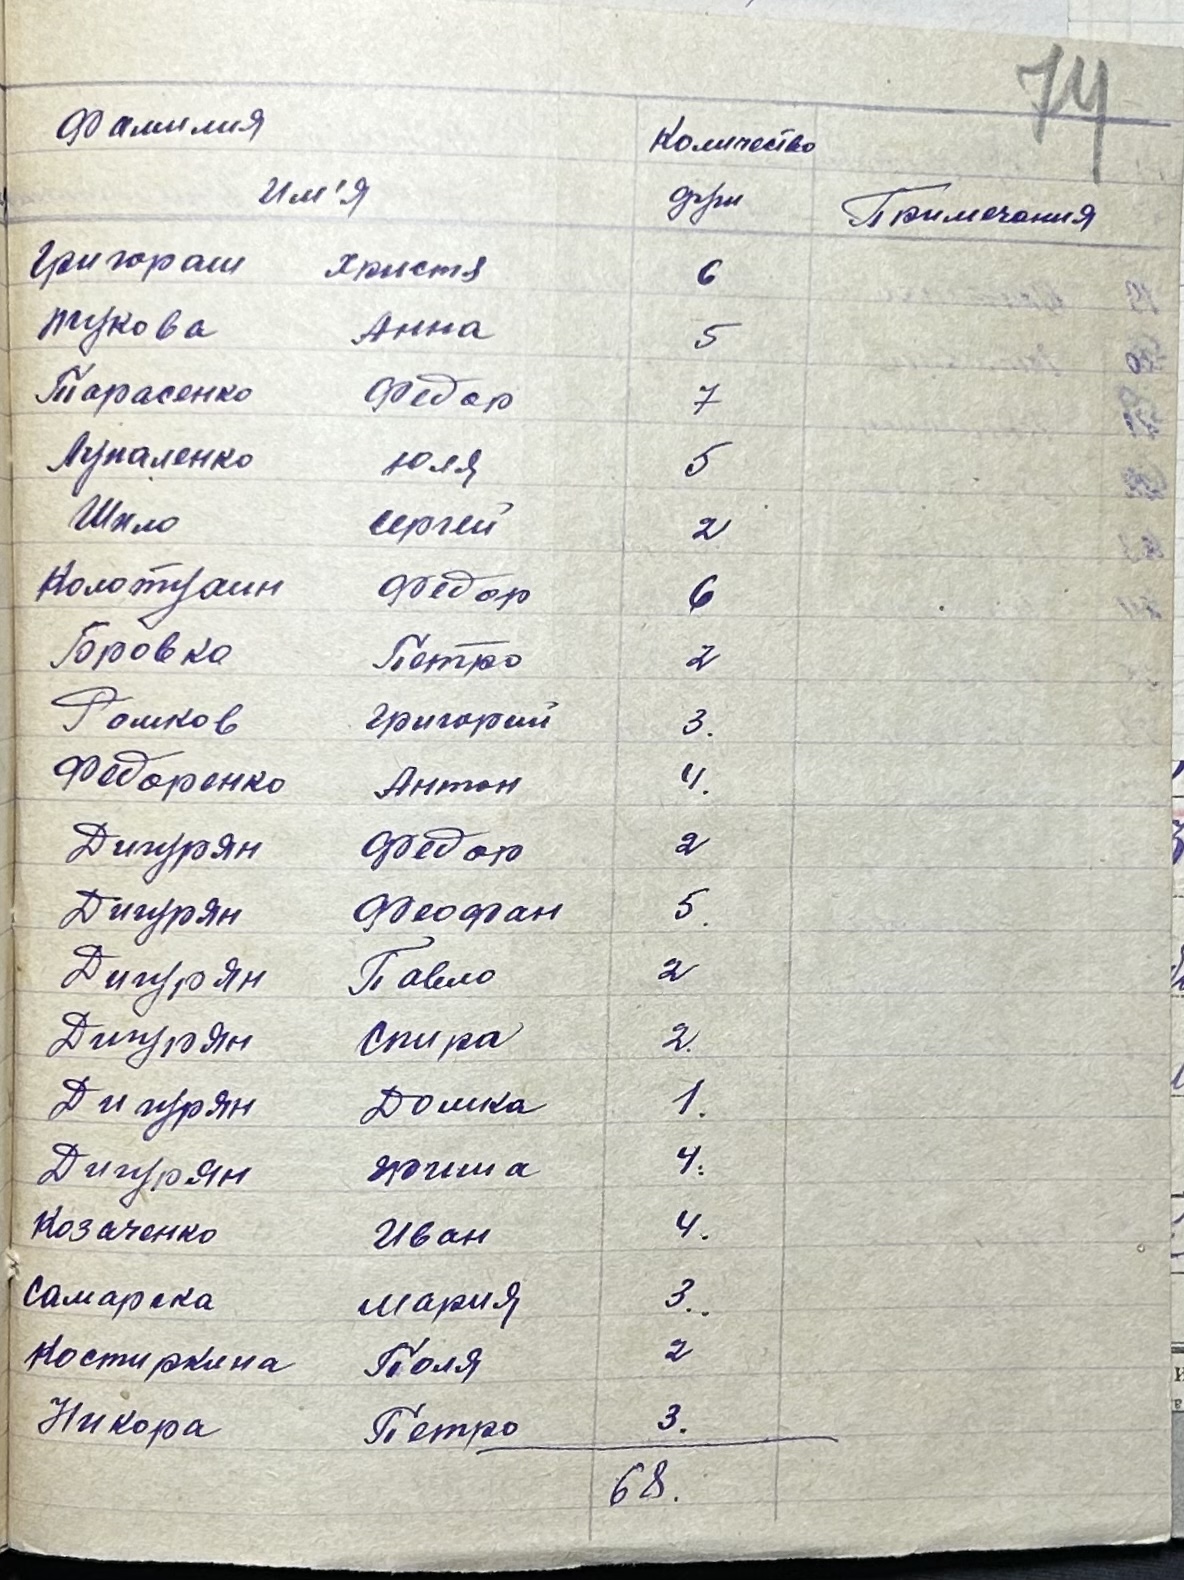 74
Фамилия
Количество
Им'я
Примечания
Григораш Христя 6
Жукова Анна 5
Тарасенко Федор 7
Лупаленко Юля 5
Шило Сергей 2
Колотушин Федор 6
Боровка Петро 2
Ромков Григорий 3.
Федоренко Антон 4.
Дигурян Федор 2
Дигурян Феофан 5.
Дигурян Павло 2
Дигурян Спира 2.
Дигурян Домка 1.
Дигурян 4.
Козаченко Иван 4.
Самарска Мария 3.
Костиркина Поля 2
Никора Петро 3.
68.